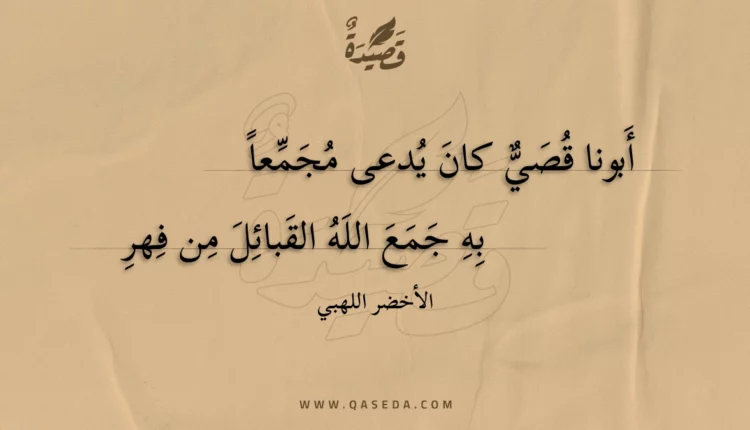 قَصِيدَةٌ
أَبونا قُصَيٌّ كانَ يُدعى مُجَمِّعاً
بِهِ جَمَعَ اللَهُ القَبائِلَ مِن فِهرِ
الأخضر اللهبي
WWW.QASEDA.COM